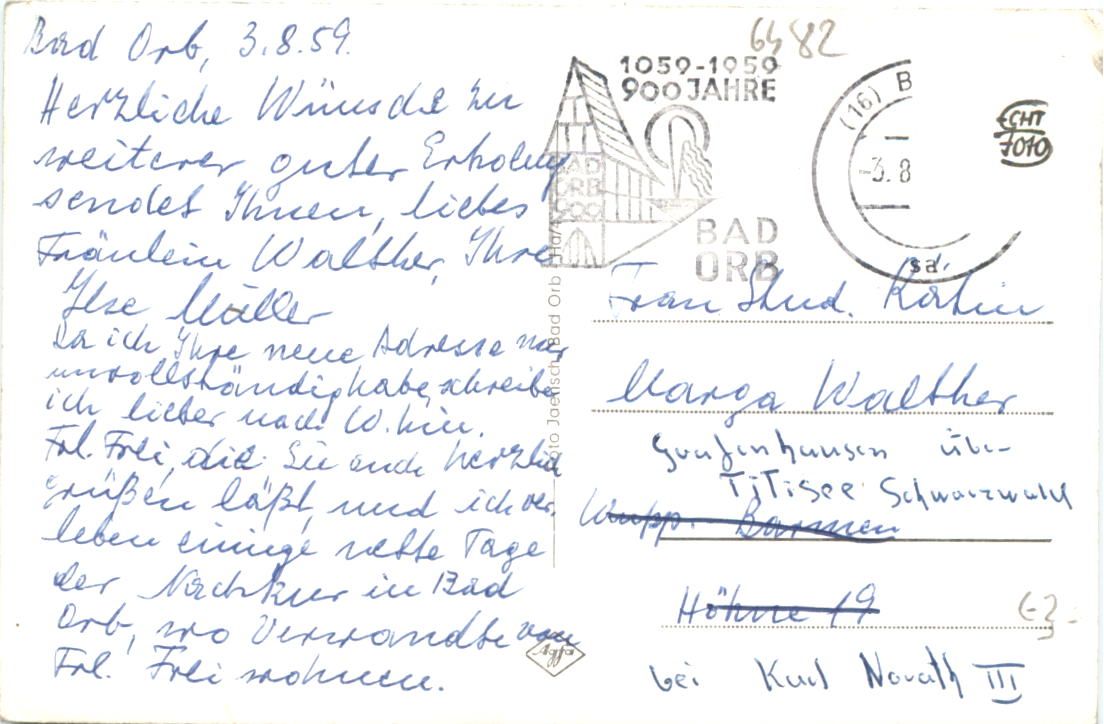 Bad Orb, 3.8.59.
Herzliche Wünsche zu
weiterer guter Erholung
sendet Ihnen, liebes
Fräulein Walther, Ihre
Ilse Müller
Da ich Ihre neue Adresse nur
unvollständig habe, schreibe
ich lieber nach W.hin.
Frl. Frei, die Sie auch herzlich
grüßen läßt, und ich ver-
leben einige nette Tage
der Nachkur in Bad
Orb, wo Verwandte von
Frl. Frei wohnen.
6482
1059-1959
900 JAHRE
BAD
ORB
900
BAD
ORB
(16) B
-3.8
sa
ECHT
FOTO
Foto Jaenisch, Bad Orb
Agfa
Frau Stud. Rätin
Marga Walther
Grafenhausen über
TiTisee Schwarzwald
Wupp. Barmen
Höhne 19
bei Karl Novath III